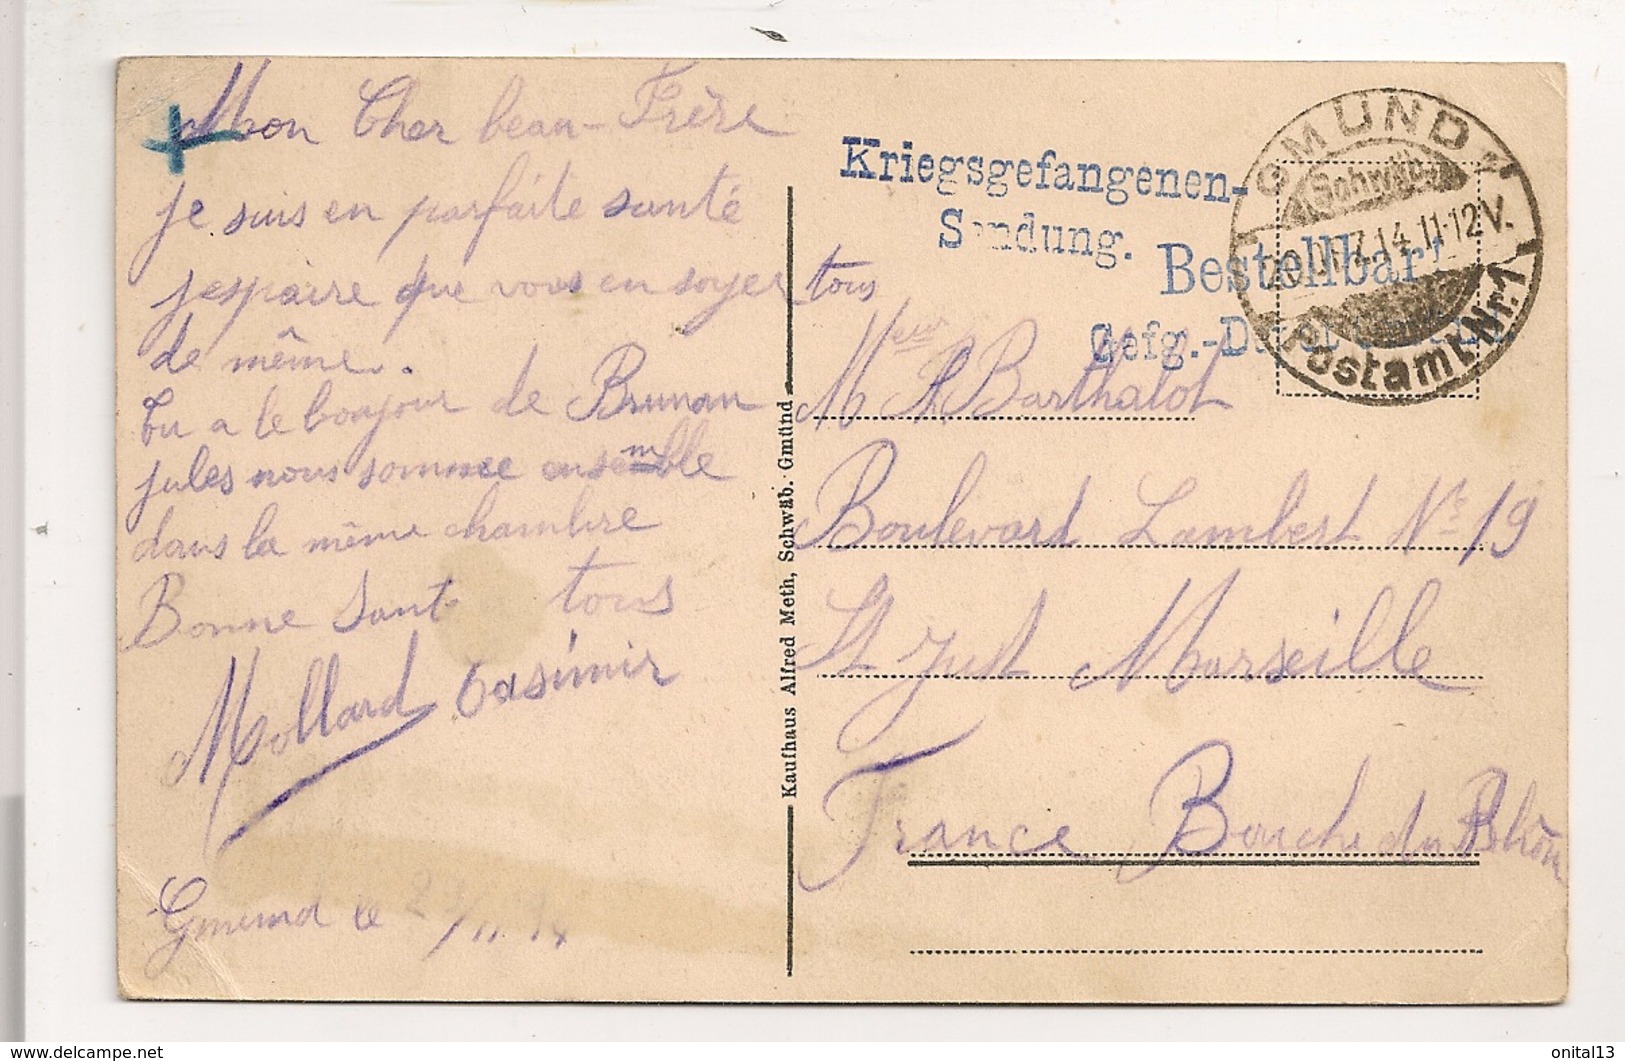 Mon Cher beau-Frère
je suis en parfaite santé
j'espaire que vous en soyer tous
de même.
Tu a le bonjour de Brunan
jules nous sommee ensemble
dans la même chambre
Bonne Sant tous
Mollard Casimir
Gmund le 29/11 14
Kaufhaus Alfred Meth, Schwäb. Gmünd
Kriegsgefangenen-
Sendung.
Bestellbar!
Gefg.-
GMÜND
Schwäb.
7.14.11-12V.
Postamt Nr.1
Meur
Mr Barthalot
Boulevard Lambert No 19
St Just Marseille
France Bouche du Rhône
onital13